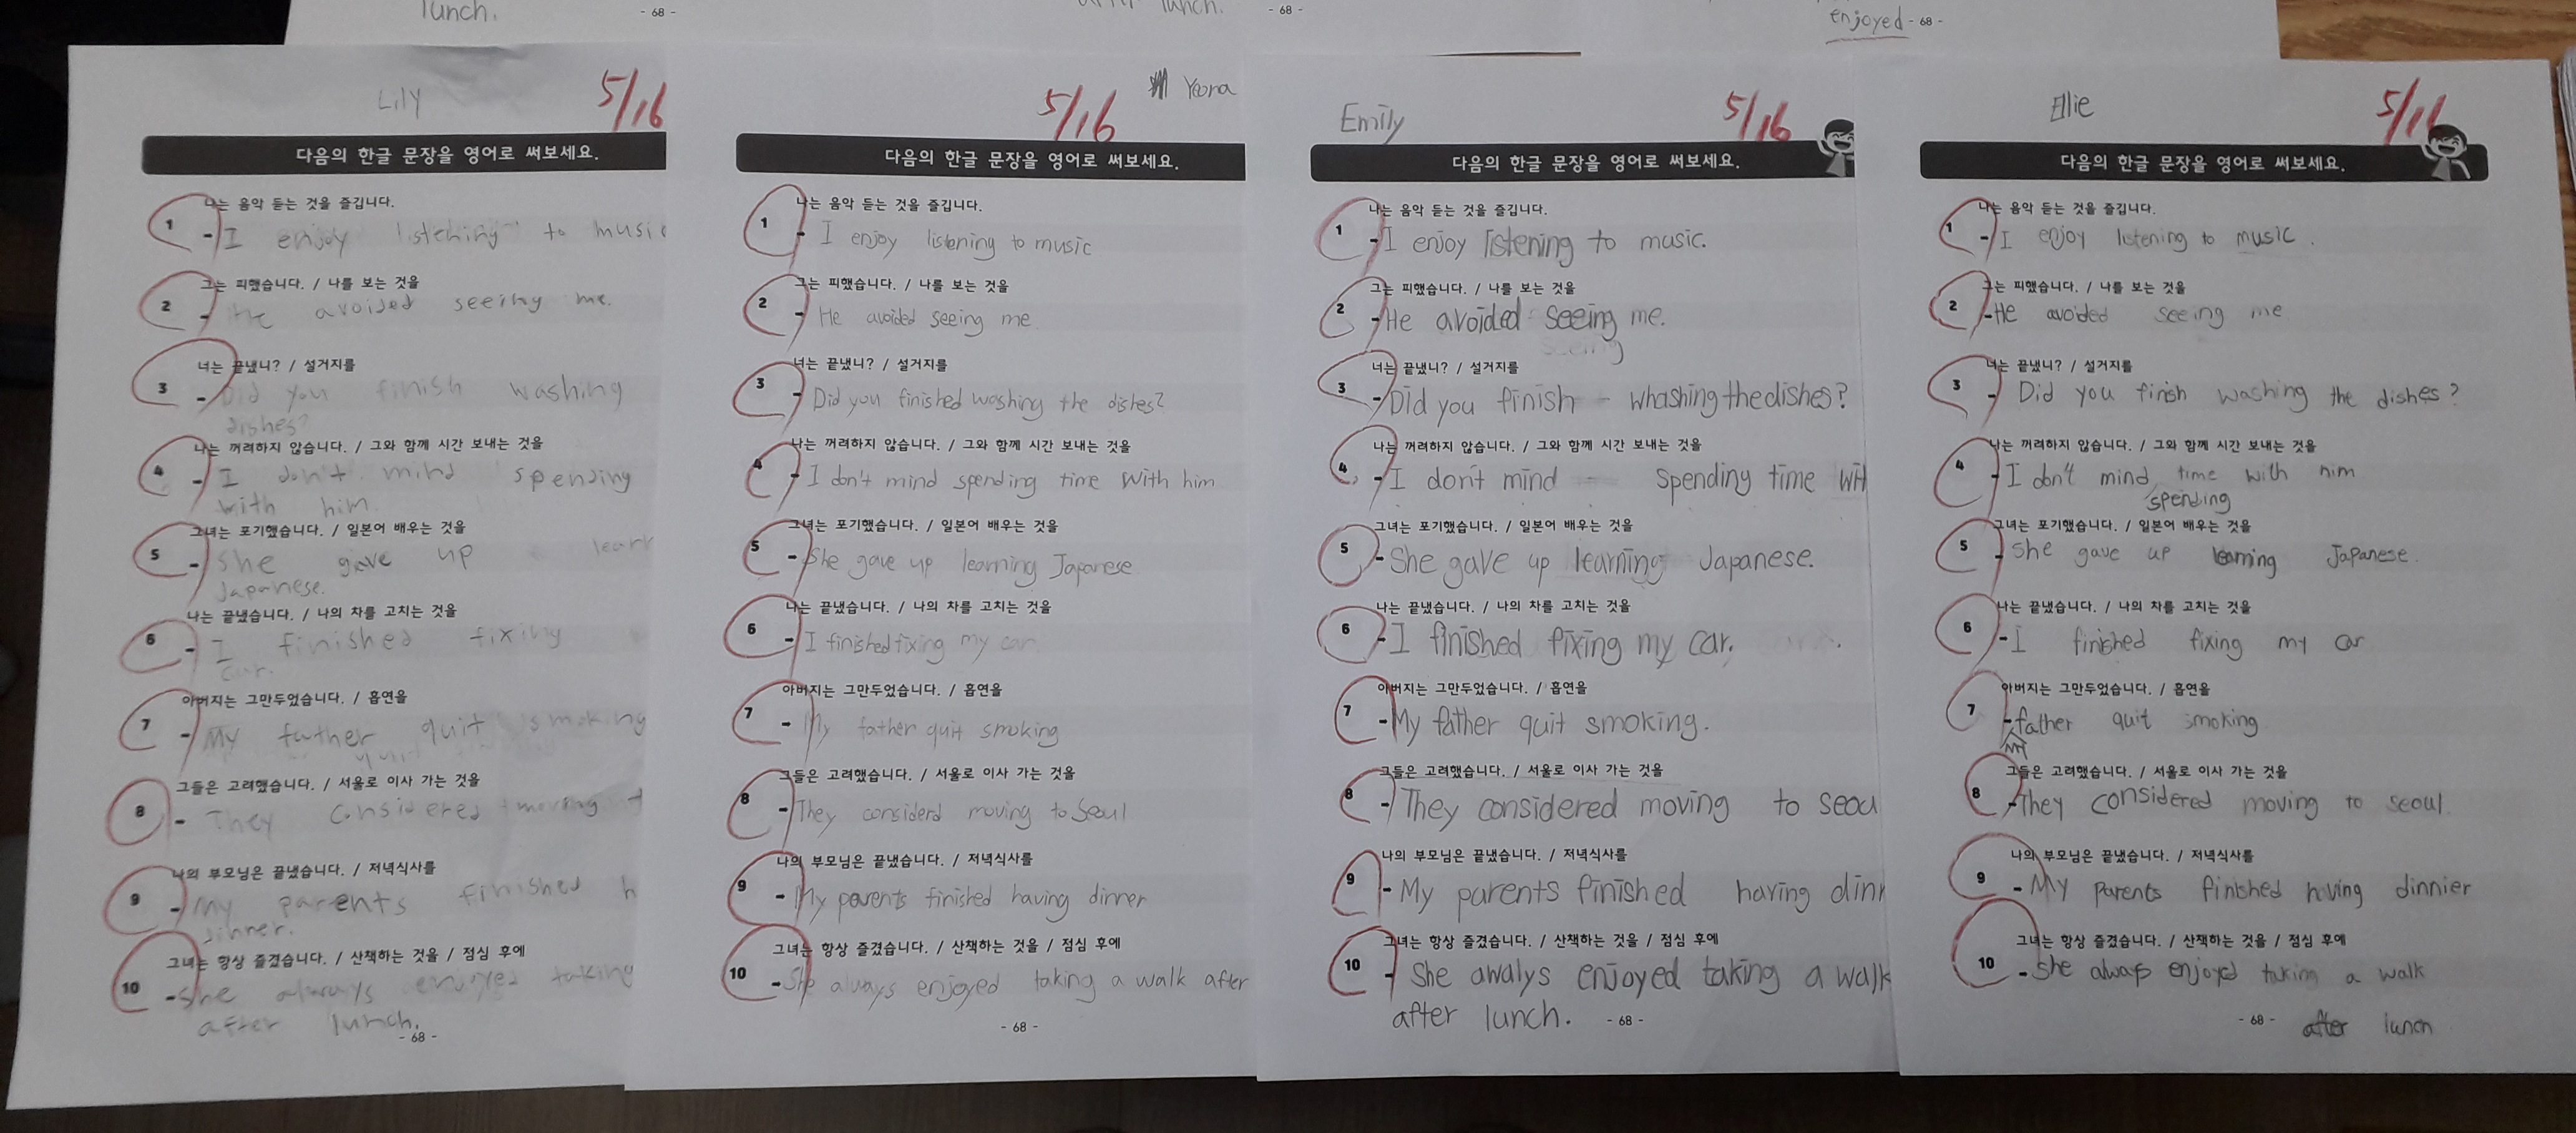 lunch.
- 68 -
after lunch.
- 68 -
enjoyed - 68 -
Lily
5/16
다음의 한글 문장을 영어로 써보세요.
1 나는 음악 듣는 것을 즐깁니다.
- I enjoy listening to music
2 그는 피했습니다. / 나를 보는 것을
- He avoided seeing me.
3 너는 끝냈니? / 설거지를
- Did you finish washing
dishes?
4 나는 꺼려하지 않습니다. / 그와 함께 시간 보내는 것을
- I don't mind spending
with him.
5 그녀는 포기했습니다. / 일본어 배우는 것을
- She gave up learn
Japanese.
6 나는 끝냈습니다. / 나의 차를 고치는 것을
- I finished fixing
car.
7 아버지는 그만두었습니다. / 흡연을
- My father quit smoking
8 그들은 고려했습니다. / 서울로 이사 가는 것을
- They considered moving t
9 나의 부모님은 끝냈습니다. / 저녁식사를
- My parents finished h
dinner.
10 그녀는 항상 즐겼습니다. / 산책하는 것을 / 점심 후에
- She always enjoyed taking
after lunch.
- 68 -
Yeona
5/16
다음의 한글 문장을 영어로 써보세요.
1 나는 음악 듣는 것을 즐깁니다.
- I enjoy listening to music
2 그는 피했습니다. / 나를 보는 것을
- He avoided seeing me.
3 너는 끝냈니? / 설거지를
- Did you finished washing the dishes?
4 나는 꺼려하지 않습니다. / 그와 함께 시간 보내는 것을
- I don't mind spending time with him
5 그녀는 포기했습니다. / 일본어 배우는 것을
- She gave up learning Japanese
6 나는 끝냈습니다. / 나의 차를 고치는 것을
- I finished fixing my car
7 아버지는 그만두었습니다. / 흡연을
- My father quit smoking
8 그들은 고려했습니다. / 서울로 이사 가는 것을
- They considerd moving to Seoul
9 나의 부모님은 끝냈습니다. / 저녁식사를
- My parents finished having dinner
10 그녀는 항상 즐겼습니다. / 산책하는 것을 / 점심 후에
- She always enjoyed taking a walk after
- 68 -
Emily
5/16
다음의 한글 문장을 영어로 써보세요.
1 나는 음악 듣는 것을 즐깁니다.
- I enjoy listening to music.
2 그는 피했습니다. / 나를 보는 것을
- He avoided seeing me.
seeing
3 너는 끝냈니? / 설거지를
- Did you finish - whashing the dishes?
4 나는 꺼려하지 않습니다. / 그와 함께 시간 보내는 것을
- I don't mind spending time wit
5 그녀는 포기했습니다. / 일본어 배우는 것을
- She gave up learning Japanese.
6 나는 끝냈습니다. / 나의 차를 고치는 것을
- I finished fixing my car.
7 아버지는 그만두었습니다. / 흡연을
- My father quit smoking.
8 그들은 고려했습니다. / 서울로 이사 가는 것을
- They considered moving to seou
9 나의 부모님은 끝냈습니다. / 저녁식사를
- My parents finished having dinn
10 그녀는 항상 즐겼습니다. / 산책하는 것을 / 점심 후에
- She awalys enjoyed taking a walk
after lunch. - 68 -
Ellie
5/16
다음의 한글 문장을 영어로 써보세요.
1 나는 음악 듣는 것을 즐깁니다.
- I enjoy listening to music.
2 그는 피했습니다. / 나를 보는 것을
- He avoided seeing me
3 너는 끝냈니? / 설거지를
- Did you finish washing the dishes?
4 나는 꺼려하지 않습니다. / 그와 함께 시간 보내는 것을
- I don't mind time with him
spending
5 그녀는 포기했습니다. / 일본어 배우는 것을
- She gave up learning Japanese.
6 나는 끝냈습니다. / 나의 차를 고치는 것을
- I finished fixing my car
7 아버지는 그만두었습니다. / 흡연을
- father quit smoking
My
8 그들은 고려했습니다. / 서울로 이사 가는 것을
- They considered moving to seoul.
9 나의 부모님은 끝냈습니다. / 저녁식사를
- My parents finished having dinnier
10 그녀는 항상 즐겼습니다. / 산책하는 것을 / 점심 후에
- She always enjoyed taking a walk
- 68 - after lunch